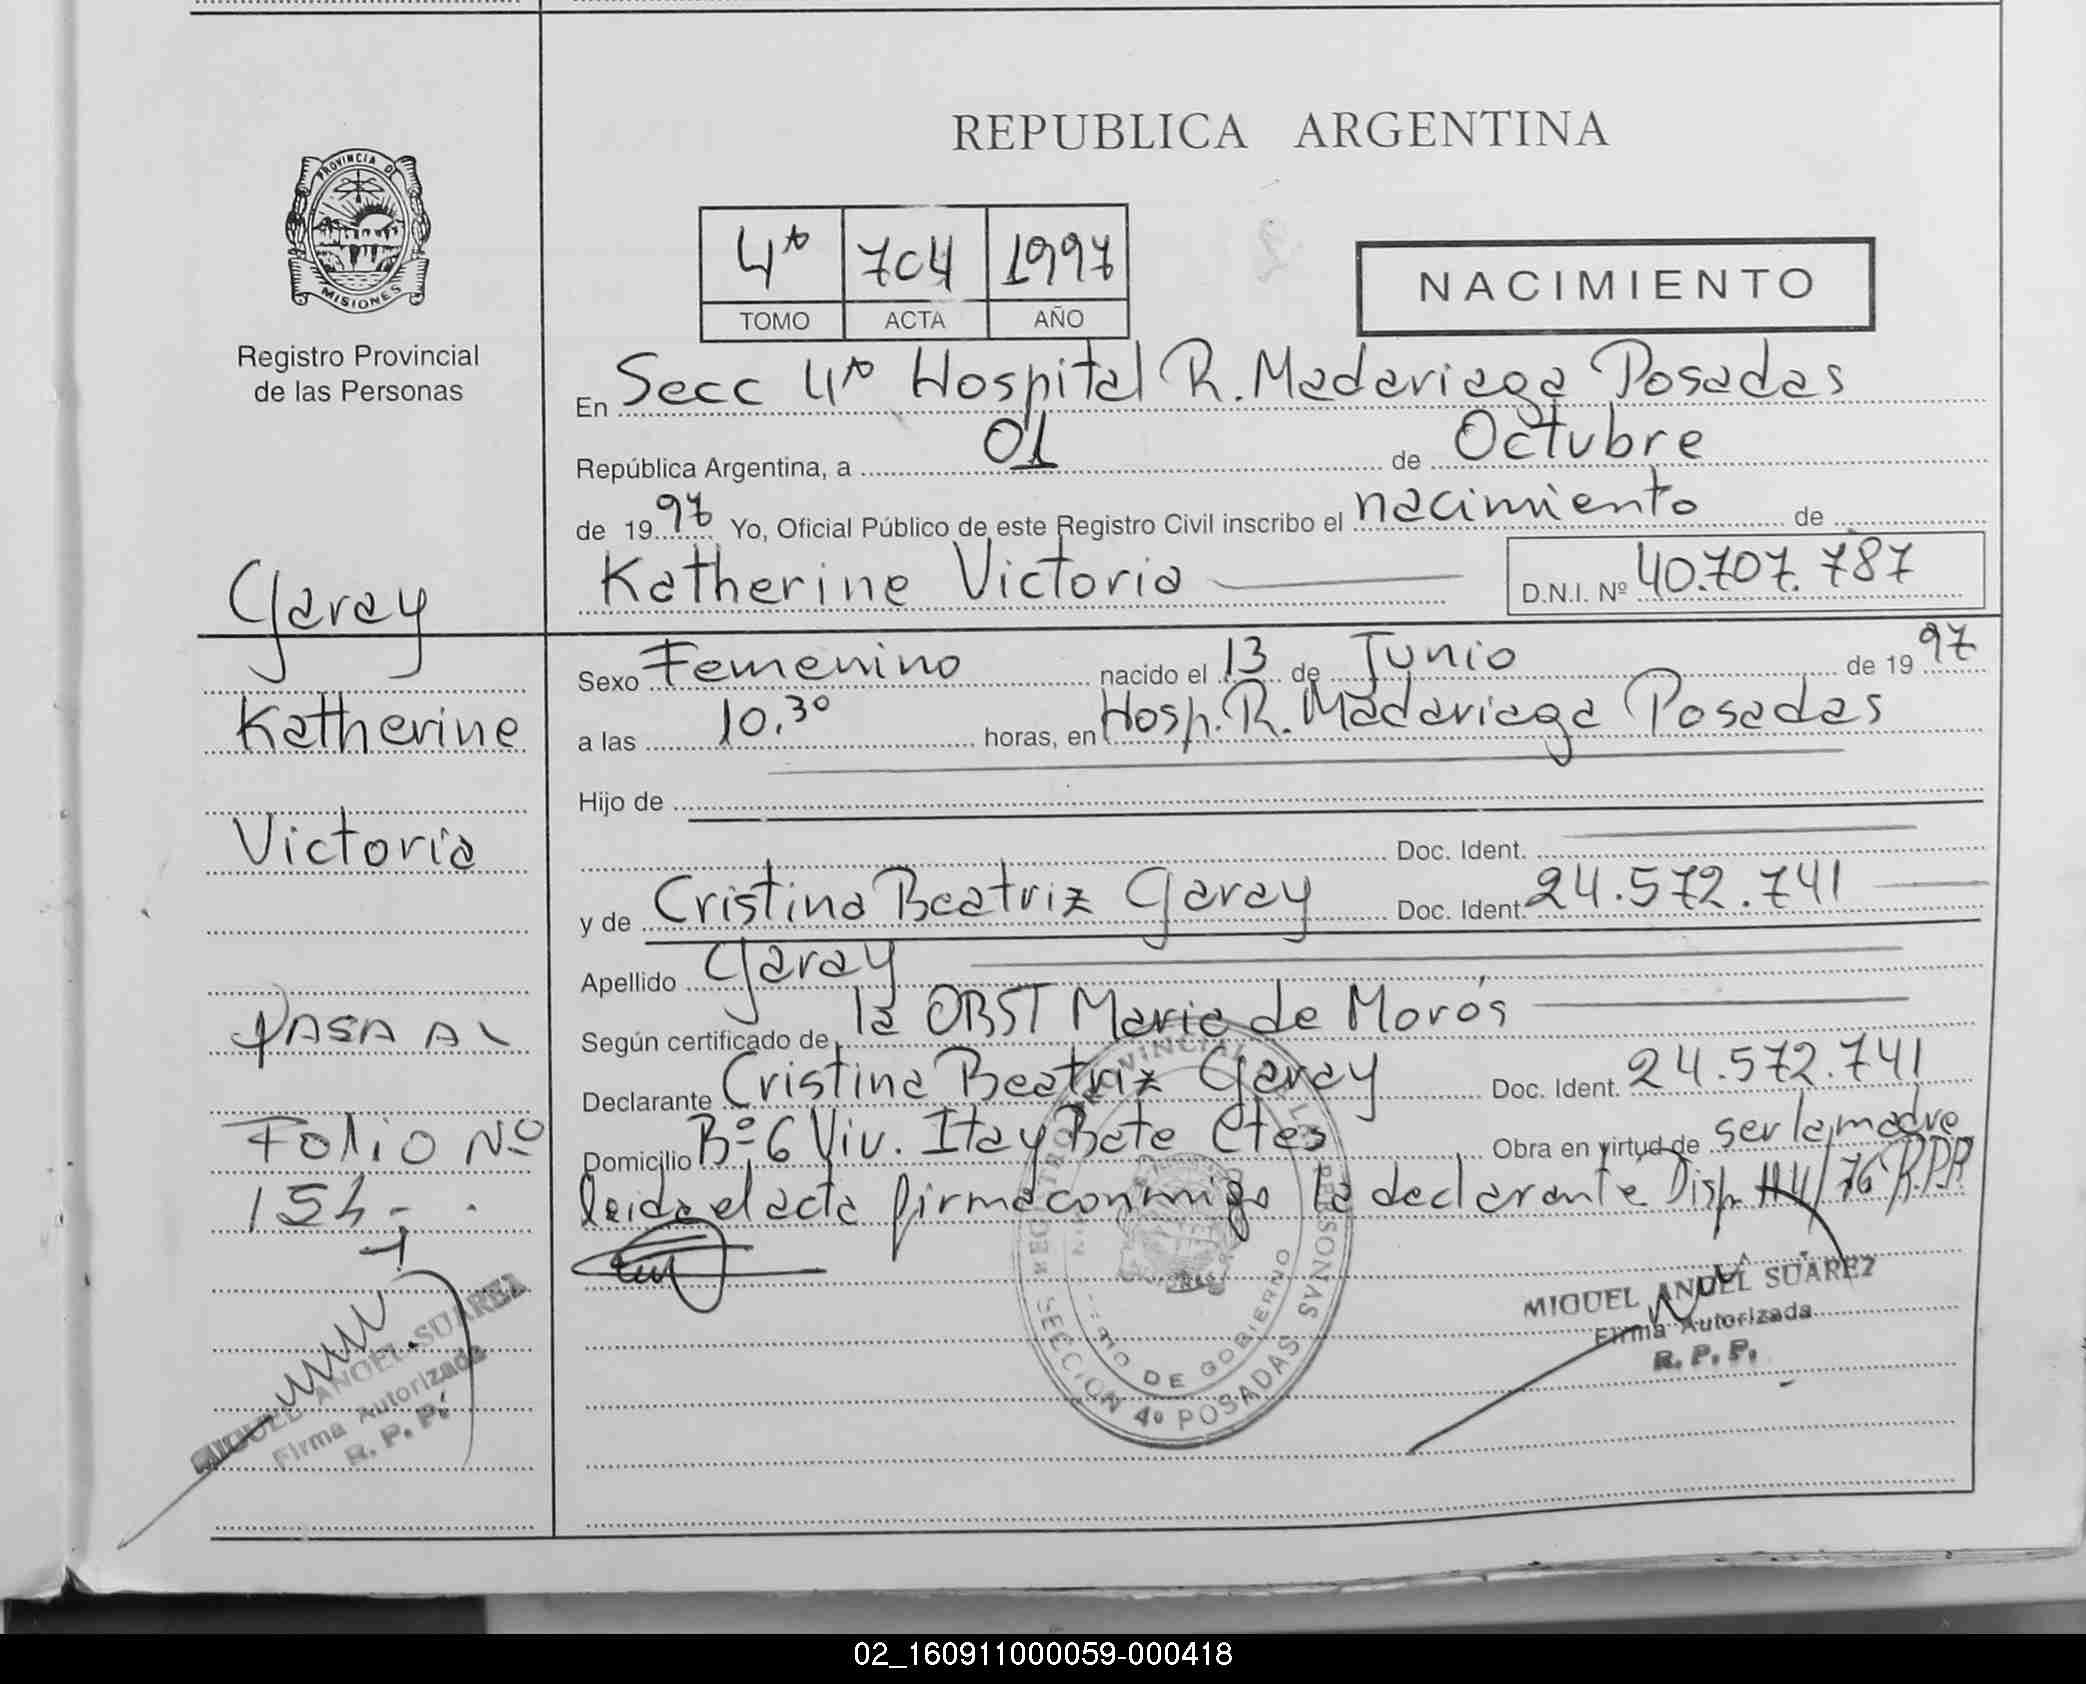 PROVINCIA DE
MISIONES
Registro Provincial
de las Personas
Garay
Katherine
Victoria
PASA AL
FOLIO Nº
154
MIGUEL ANGEL SUAREZ
Firma Autorizada
R. P. P.
REPUBLICA ARGENTINA
4ta 704 1997
TOMO ACTA AÑO
NACIMIENTO
En Secc 4ta Hospital R. Madariaga Posadas
República Argentina, a 01 de Octubre
de 1997 Yo, Oficial Público de este Registro Civil inscribo el nacimiento de
Katherine Victoria D.N.I. Nº 40.707.787
Sexo Femenino nacido el 13 de Junio de 1997
a las 10,30 horas, en Hosp. R. Madariaga Posadas
Hijo de
Doc. Ident.
y de Cristina Beatriz Garay Doc. Ident. 24.572.741
Apellido Garay
Según certificado de la OBST Maria de Morós
Declarante Cristina Beatriz Garay Doc. Ident. 24.572.741
Domicilio Bº 6 Viv. Ita y Bate Ctes Obra en virtud de ser la madre
leida el acta firma conmigo la declarante Disp. 114/76 R.P.P.
SECCION 4º POSADAS
DE GOBIERNO
MIGUEL ANGEL SUAREZ
Firma Autorizada
R. P. P.
02_160911000059-000418